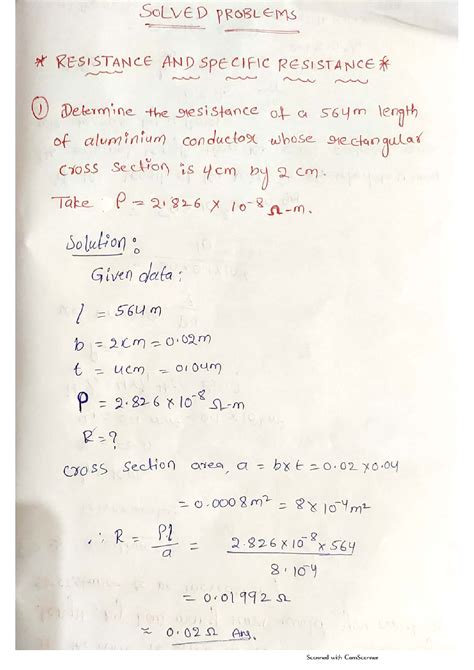 SOLVED PROBLEMS
* RESISTANCE AND SPECIFIC RESISTANCE *
① Determine the resistance of a 564m length
of aluminium conductor whose rectangular
cross section is 4cm by 2 cm.
Take ρ = 2.826 × 10⁻⁸ Ω-m.
Solution :
Given data :
l = 564 m
b = 2cm = 0.02m
t = 4cm = 0.04m
ρ = 2.826 × 10⁻⁸ Ω-m
R = ?
cross section area, a = b×t = 0.02 × 0.04
= 0.0008 m² = 8 × 10⁻⁴ m²
∴ R = ρl / a = 2.826 × 10⁻⁸ × 564 / 8 · 10⁻⁴
= 0.01992 Ω
≈ 0.02 Ω Ans.
Scanned with CamScanner